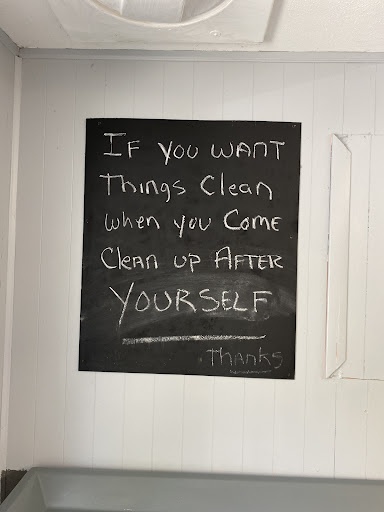 IF YOU WANT
Things Clean
when you Come
Clean up AFTER
YOURSELF
THANKS